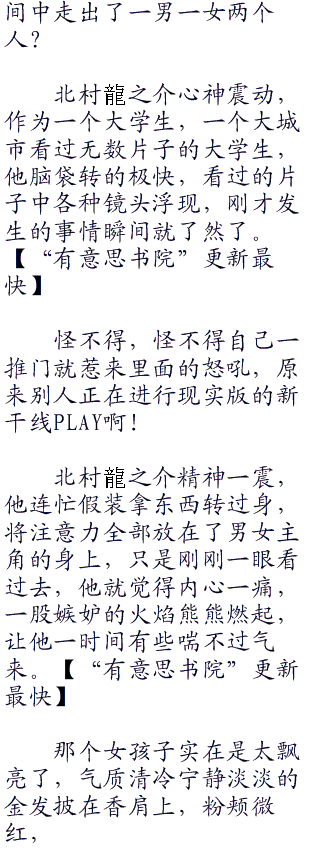 间中走出了一男一女两个
人？
北村龍之介心神震动，
作为一个大学生，一个大城
市看过无数片子的大学生，
他脑袋转的极快，看过的片
子中各种镜头浮现，刚才发
生的事情瞬间就了然了。
【“有意思书院”更新最
快】
怪不得，怪不得自己一
推门就惹来里面的怒吼，原
来别人正在进行现实版的新
干线PLAY啊！
北村龍之介精神一震，
他连忙假装拿东西转过身，
将注意力全部放在了男女主
角的身上，只是刚刚一眼看
过去，他就觉得内心一痛，
一股嫉妒的火焰熊熊燃起，
让他一时间有些喘不过气
来。【“有意思书院”更新
最快】
那个女孩子实在是太飘
亮了，气质清冷宁静淡淡的
金发披在香肩上，粉颊微
红，